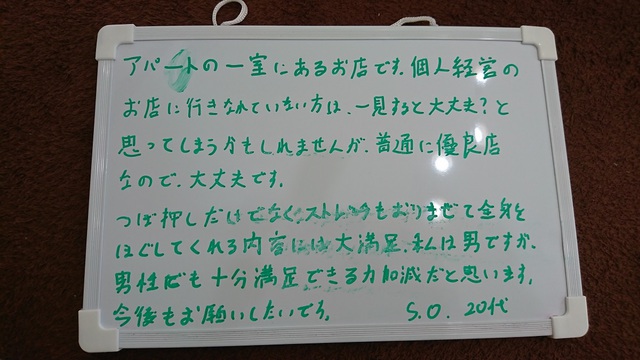 アパートの一室にあるお店です。個人経営の
お店に行きなれていない方は、一見すると大丈夫?と
思ってしまうかもしれませんが、普通に優良店
なので、大丈夫です。
つぼ押しだけでなく、ストレッチもおりまぜて全身を
ほぐしてくれる内容には大満足。私は男ですが、
男性でも十分満足できる力加減だと思います。
今後もお願いしたいです。 S.O. 20代